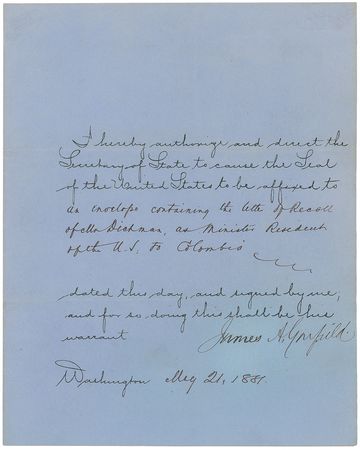 I hereby authorize and direct the
Secretary of State to cause the Seal
of the United States to be affixed to
an envelope containing the letter of Recall
of Mr Dichman, as Minister Resident
of the U.S. to Colombia
dated this day, and signed by me;
and for so doing this shall be his
warrant
James A. Garfield
Washington May 21, 1881.